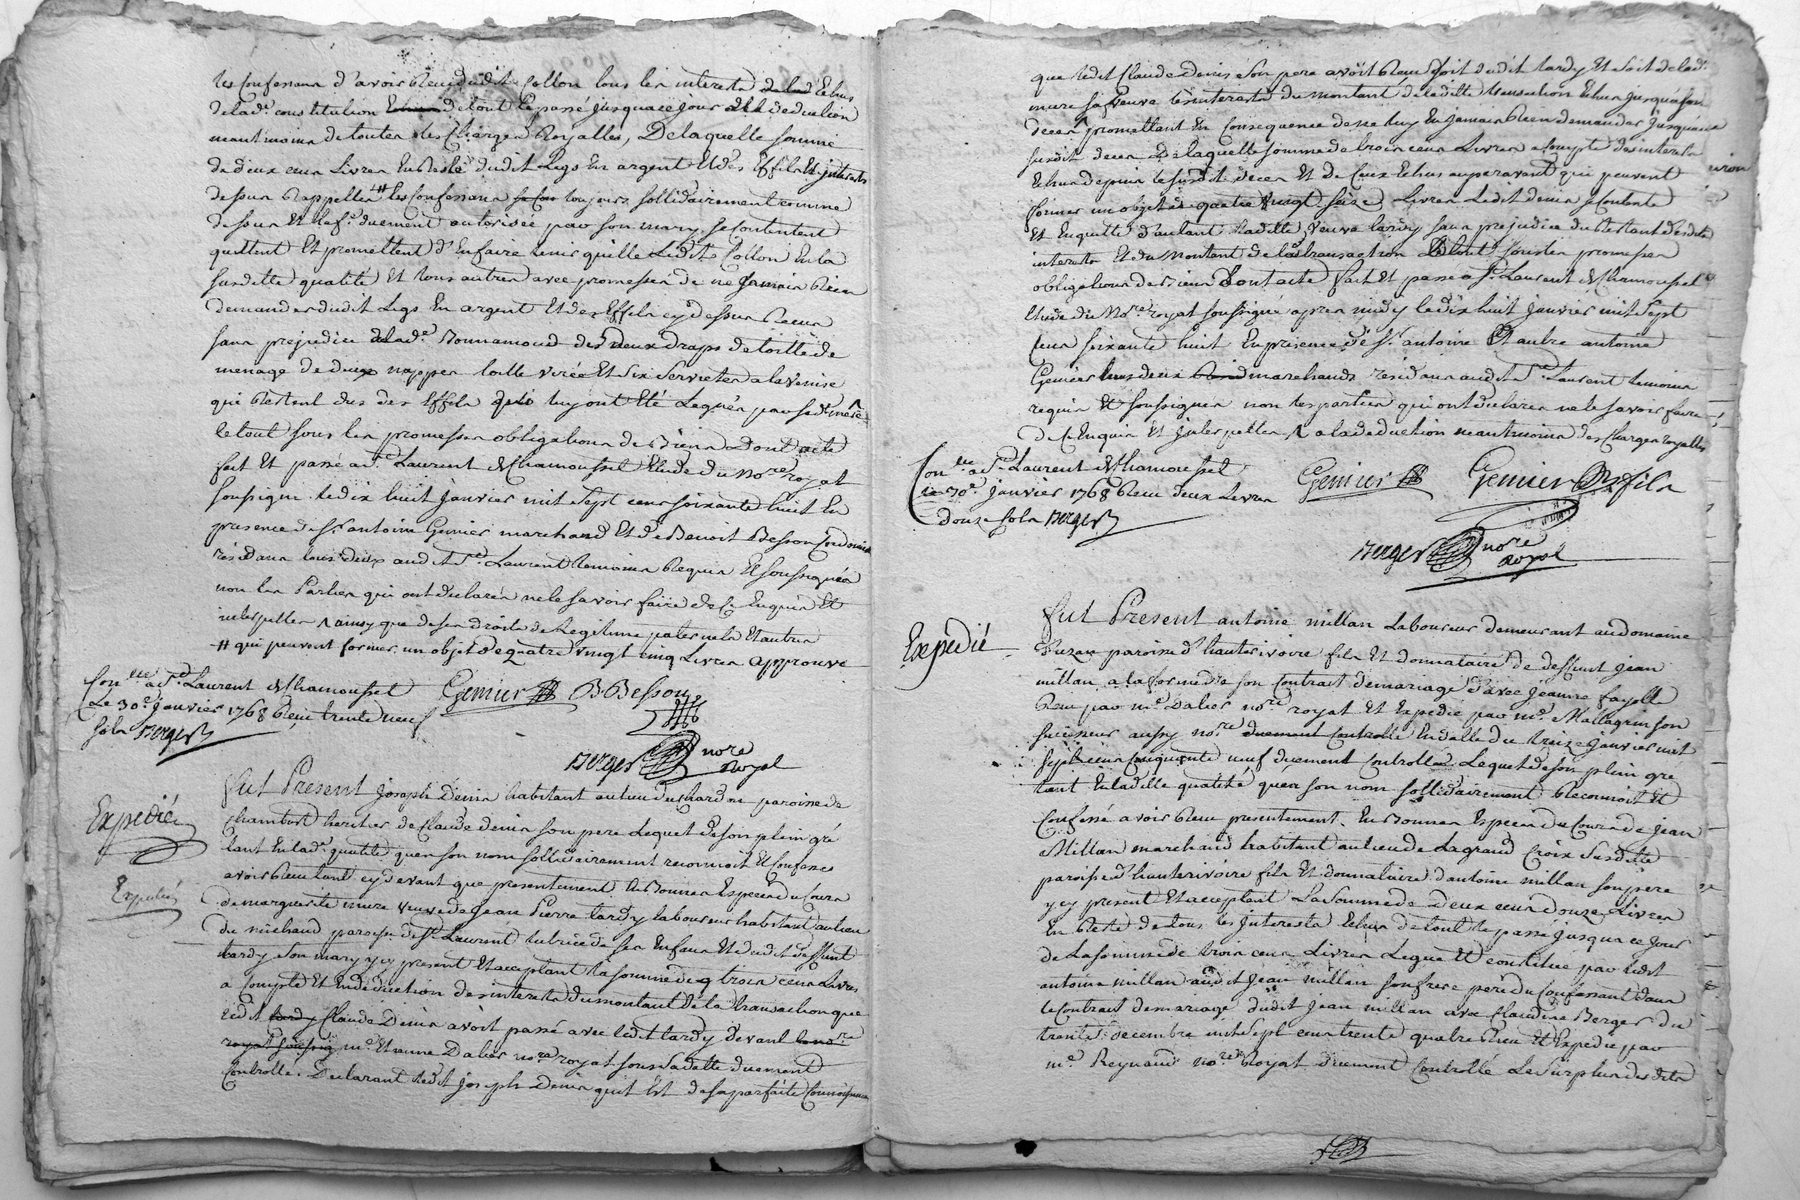 les confessans d'avoir Reçu dudit Collon tous les interets de lad Echus
delad.e constitution Echus de tout le passé jusqua ce jour alad deduction
neantmoins de toutes les Charges Royalles, De laquelle somme
de deux cens Livres En Reste dudit Legs En argent Et des Effets Et interets
dessus Rappellés # les Confessans se Con toujours sollidairement comme
dessus Et lad.e duement autorisée par son mary se contentent
quittent Et promettent d'En faire tenir quitte Ledit Collon En la
susditte qualité Et tous autres avec promesses de ne jamais Rien
demander dudit Legs En argent Et des Effets cy dessus Reçus
sans prejudice alad.e Bonnamour des deux draps de toille de
menage de deux nappes toille virée Et six Serviettes a la Venise
qui Restent dus des Effets qui luy ont Eté Legués par sad mere
le tout sous les promesses obligations de Biens Dont acte
fait Et passé a S.t Laurent de Chamousset Etude du No.re royal
soussigné le dix huit janvier mil sept cens soixante huit En
presence de S.r antoine Genier marchand Et de Benoit Besson Cordonnier
résidans tous deux aud.t S.t Laurent temoins Requis Et soussignés
non les Parties qui ont déclarés ne le savoir faire de Ce Enquis Et
interpellés ainsy que de ses droits de Legitime paternels Et autres
# qui peuvent former un objet de quatre vingt cinq Livres approuvé
Con.llé a S.t Laurent de Chamousset
Le 30.e janvier 1768 Reçu trente neuf
sols Berger
Genier B Besson
Berger no.re
Royal
Expedié
Expedié
Fut Present joseph Denis habitant au lieu du Chardon paroisse de
chambost heritier de Claude denis son pere Lequel de son plein gré
tant En lad.e qualité qu'en son nom sollidairement reconnoit Et Confesse
avoir Reçu tant cy devant que presentement En Bonnes Especes du Cours
de marguerite mure veuve de Jean Pierre tardy laboureur habitant au lieu
du michaud paroisse de S.t Laurent tutrice de ses Enfans Et dudit deffunt
tardy son mary y cy present Et acceptant la somme de trois cens Livres
a Compte Et En deduction des interets du montant de la transaction que
ledit tardy Claude Denis avoit passé avec ledit tardy devant le no.re
royal soussig m.e Etienne Dalier no.re royal sous sa datte duement
Controllé. Declarant ledit joseph Denis qu'il Est de sa parfaite Connoissance
que ledit Claude Denis son pere avoit Reçu soit dudit tardy Et soit de lad.
mure sa veuve les interets du montant de laditte transaction Echus jusqua son
deces promettant En Consequence de ne luy En jamais Rien demander jusquau
susdit deces de laquelle somme de trois cens Livres a Compte des interets
Echus depuis le susdit deces Et de Ceux Echus auparavant qui peuvent
former un objet de quatre vingt seize Livres Ledit denis se Contente
Et En quitte d'autant laditte veuve tardy sans prejudice du Restant desdits
interets Et du montant de lad transaction Le tout sous les promesses
obligations de Biens Dont acte fait Et passé a S.t Laurent de Chamousset
Etude du No.re royal soussigné apres midy le dix huit janvier mil sept
cens soixante huit En presence de S.r antoine Et autre antoine
Genier tous deux marchands résidans audit S.t Laurent temoins
requis Et soussignés non les parties qui ont declarés ne le savoir faire
de ce Enquis Et interpellés a la deduction neantmoins des Charges royalles
Con.llé a S.t Laurent de Chamousset
Le 30.e janvier 1768 Reçu deux Livres
douze sols Berger
Genier Genier fils
Berger no.re
Royal
Expedié
Fut Present antoine millan Laboureur demeurant au domaine
Buzan paroisse d'hauterivoire fils Et donnataire de deffunt jean
millan a la forme de son Contrat de mariage d'avec jeanne fayolle
Reçu par m.e Dalier no.re royal Et Expedié par m.e Mallaguin son
successeur aussy no.re duement controllé En datte du treize janvier mil
sept cens cinquante neuf duement Controllé Lequel de son plein gré
tant En laditte qualité qu'en son nom sollidairement Reconnoit Et
Confesse avoir Reçu presentement En Bonnes Especes du Cours de jean
Millan marchand habitant au lieu de La grand Croix susditte
paroisse d'hauterivoire fils Et donnataire d'antoine millan son pere
y cy present Et acceptant La somme de Deux cens douze Livres
En Reste de tous les interets Echus de tout le passé jusqua ce jour
de La somme de trois cens Livres Legué Et constitué par ledit
antoine millan audit Jean millan son frere pere du Confessant dans
le Contrat de mariage dudit jean millan avec Claudine Berger du
trente decembre mil sept cens trente quatre Reçu Et Expedié par
m.e Reynaud no.re Royal Duement Controllé Le surplus desdits